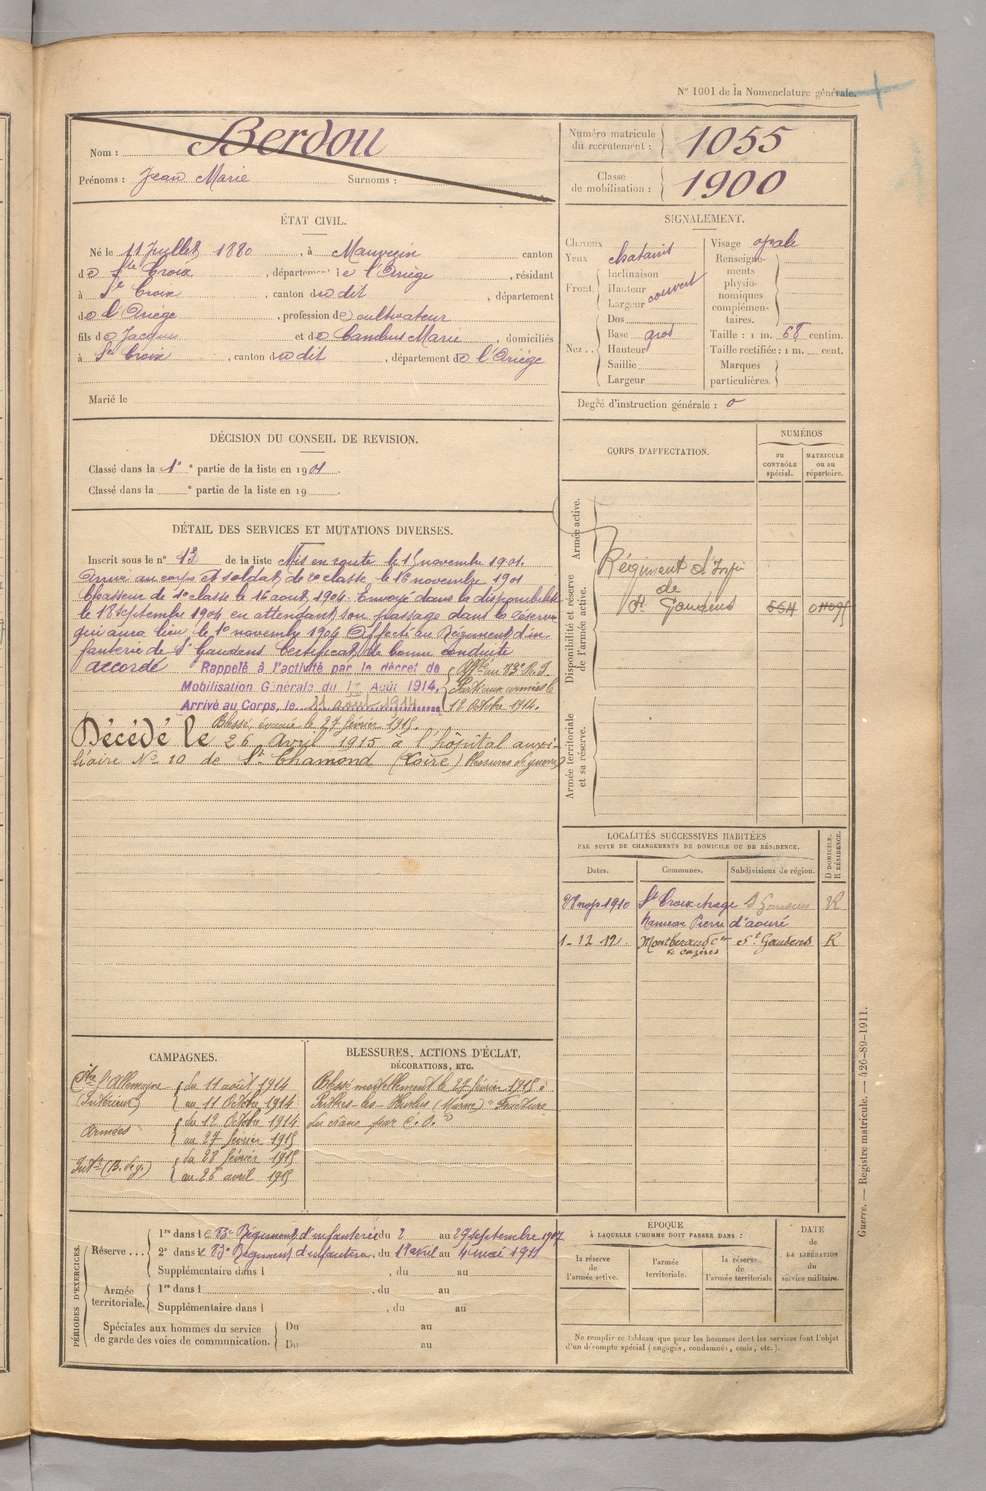 N° 1001 de la Nomenclature générale.
Nom : Berdou
Prénoms : Jean Marie Surnoms :
Numéro matricule du recrutement : 1055
Classe de mobilisation : 1900
ÉTAT CIVIL.
Né le 11 Juillet 1880, à Mauvezin canton
de Ste Croix, département de l'Ariège, résidant
à Ste Croix, canton du dit, département
de l'Ariège, profession de cultivateur
fils de Jacques et de Cambus Marie, domiciliés
à Ste Croix, canton du dit, département de l'Ariège
Marié le
SIGNALEMENT.
Cheveux
Yeux chatains
Front Inclinaison
Hauteur
Largeur couvert
Nez .. Dos
Base gros
Hauteur
Saillie
Largeur
Visage ovale
Renseignements physionomiques complémentaires.
Taille : 1 m. 68 centim.
Taille rectifiée : 1 m. cent.
Marques particulières.
Degré d'instruction générale : 0
DÉCISION DU CONSEIL DE REVISION.
Classé dans la 1e partie de la liste en 1901.
Classé dans la e partie de la liste en 19 .
CORPS D'AFFECTATION.
NUMÉROS
au CONTRÔLE spécial.
MATRICULE ou au répertoire.
Armée active.
Disponibilité et réserve de l'armée active.
Régiment d'Infie
de
St Gaudens 554
Armée territoriale et sa réserve.
DÉTAIL DES SERVICES ET MUTATIONS DIVERSES.
Inscrit sous le n° 13 de la liste Mis en route le 15 novembre 1901.
Arrivé au corps et soldat de 2e classe le 16 novembre 1901
Chasseur de 1e classe le 16 aout 1904. Envoyé dans la disponibilité
le 18 septembre 1904 en attendant son passage dans la réserve
qui aura lieu le 1e novembre 1904 Affecté au Régiment d'in
fanterie de St Gaudens Certificat de bonne conduite
accordé Rappelé à l'activité par le décret de
Mobilisation Générale du 1er Août 1914.
Arrivé au Corps, le 11 août 1914
Affé au 83e R.I.
Parti aux armées le
12 Octobre 1914.
Blessé, évacué le 27 février 1915.
Décédé le 26 Avril 1915 à l'hôpital auxi-
liaire No 10 de St Chamond (Loire) blessures de guerre
LOCALITÉS SUCCESSIVES HABITÉES
PAR SUITE DE CHANGEMENTS DE DOMICILE OU DE RÉSIDENCE.
Dates. Communes. Subdivisions de région. D DOMICILE. R RÉSIDENCE.
1910 Ste Croix St Gaudens R
hameau Pierre d'
1-12 12. Montberaud con St Gaudens R
de Cazères
CAMPAGNES.
Cte l'Allemagne du 11 août 1914
(Intérieur) au 11 Octobre 1914
Armées du 12 Octobre 1914
au 27 février 1915
Intr (B. de g.) du 28 février 1915
au 26 avril 1915
BLESSURES, ACTIONS D'ÉCLAT,
DÉCORATIONS, ETC.
Blessé mortellement le 27 février 1915 à
Perthes-les-Hurlus (Marne) "Fracture
du crâne par é. o."
PÉRIODES D'EXERCICES.
Réserve ... 1re dans le 83e Régiment d'infanterie du 2 au 29 septembre 1907
2e dans le 83e Régiment d'infanterie du 18 avril au 4 mai 1911
Supplémentaire dans l , du au
Armée territoriale. 1re dans l , du au
Supplémentaire dans l , du au
Spéciales aux hommes du service de garde des voies de communication. Du au
Du au
EPOQUE
À LAQUELLE L'HOMME DOIT PASSER DANS :
la réserve de l'armée active.
l'armée territoriale.
la réserve de l'armée territoriale
DATE
de
LA LIBÉRATION
du
service militaire.
Ne remplir ce tableau que pour les hommes dont les services font l'objet
d'un décompte spécial (engagés, condamnés, omis, etc.).
Guerre. — Registre matricule. — 426-89-1911.